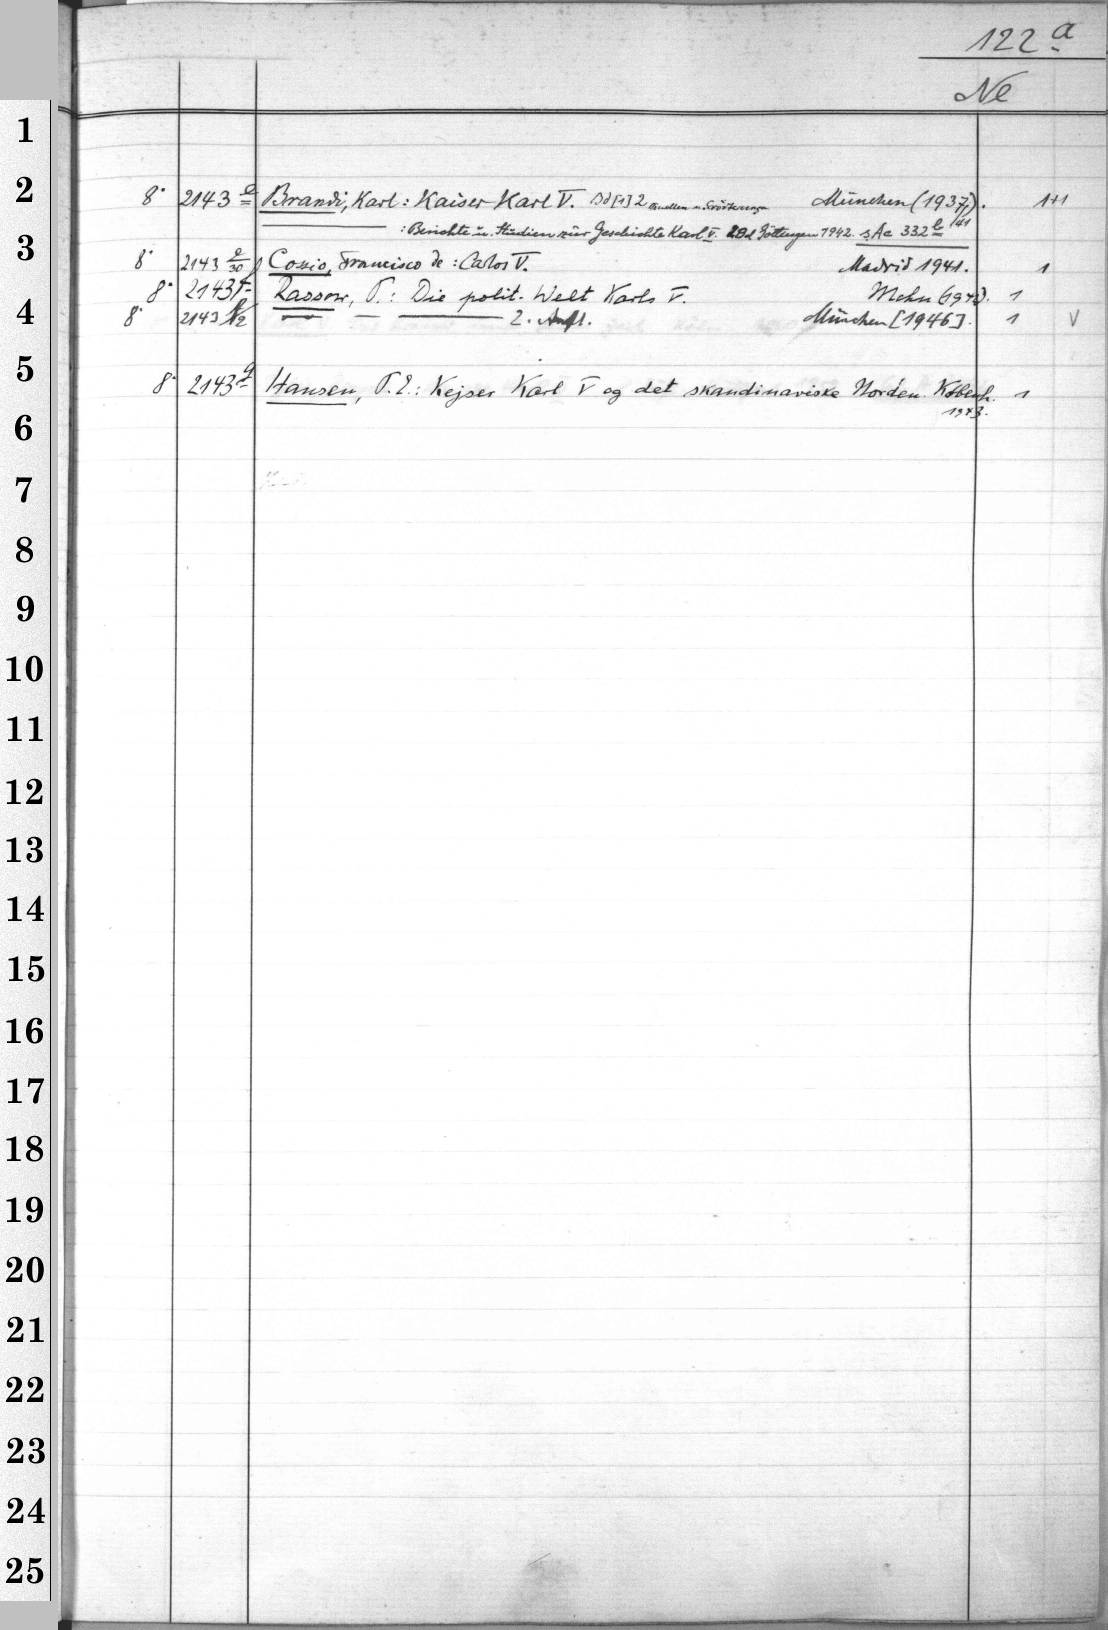 122 a
Ne
1
2
8° 2143 e Brandi, Karl: Kaiser Karl V. Bd [1] 2 Quellen u. Erörterungen München (1937/41). 1+1
: Berichte u. Studien zur Geschichte Karl V. Göttingen 1942. s Ac 332 b
3
8° 2143 e/30 Cossio, Francisco de: Carlos V. Madrid 1941. 1
8° 2143 f Rassow, P.: Die polit. Welt Karls V. Mchn (1942). 1
4
8° 2143 f/2 — — — 2. Aufl. München [1946]. 1 V
5
8° 2143 g Hansen, P. E.: Kejser Karl V og det skandinaviske Norden. Københ. 1943. 1
6
7
8
9
10
11
12
13
14
15
16
17
18
19
20
21
22
23
24
25